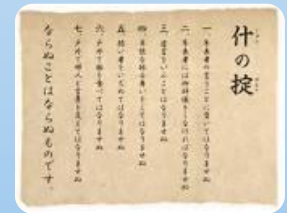 什の掟
一、年長者の言うことに背いてはなりませぬ
二、年長者には御辞儀をしなければなりませぬ
三、虚言をいふことはなりませぬ
四、卑怯な振る舞いをしてはなりませぬ
五、弱い者をいぢめてはなりませぬ
六、戸外で物を食べてはなりませぬ
七、戸外で婦人と言葉を交えてはなりませぬ
ならぬことはならぬものです。